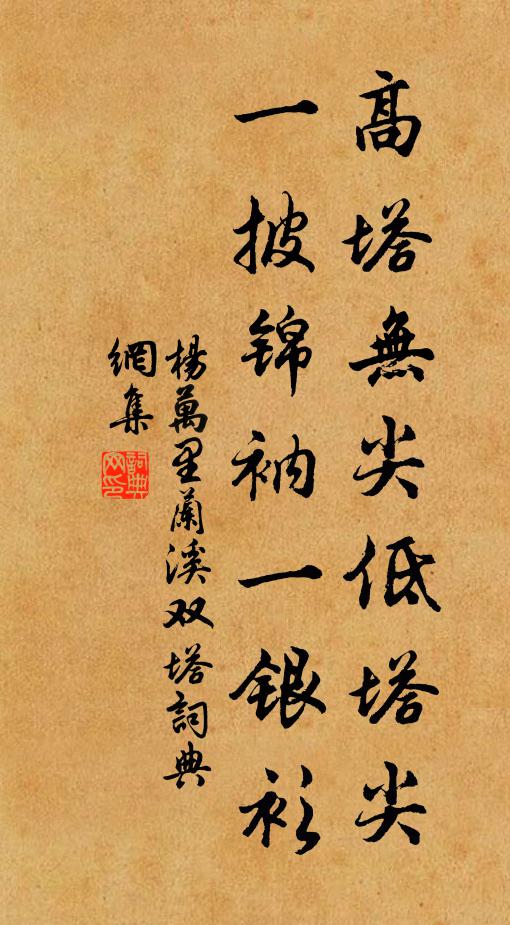 高塔無尖低塔尖
一披錦衲一銀衫
楊萬里蘭溪双塔詞典
網集
詞典
网印